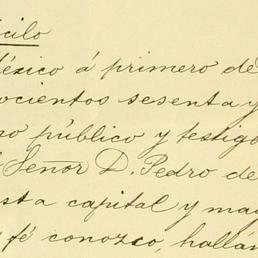 cilo
México á primero de
ocientos sesenta y
no público y testigo
l Señor D. Pedro de
sta capital y may
fé conozco, hallán